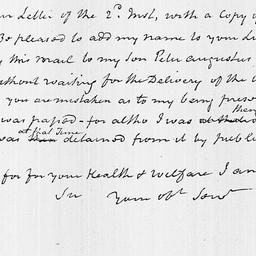 Letter of the 2d. Inst, with a Copy of
Be pleased to add my name to your
by this mail to my Son Peter Augustus
without waiting for the Delivery of the
you are mistaken as to my being
was passed - for altho I was
at that Time
was detained from it by
for your Health & Welfare I am
Sir Your obt. Servt